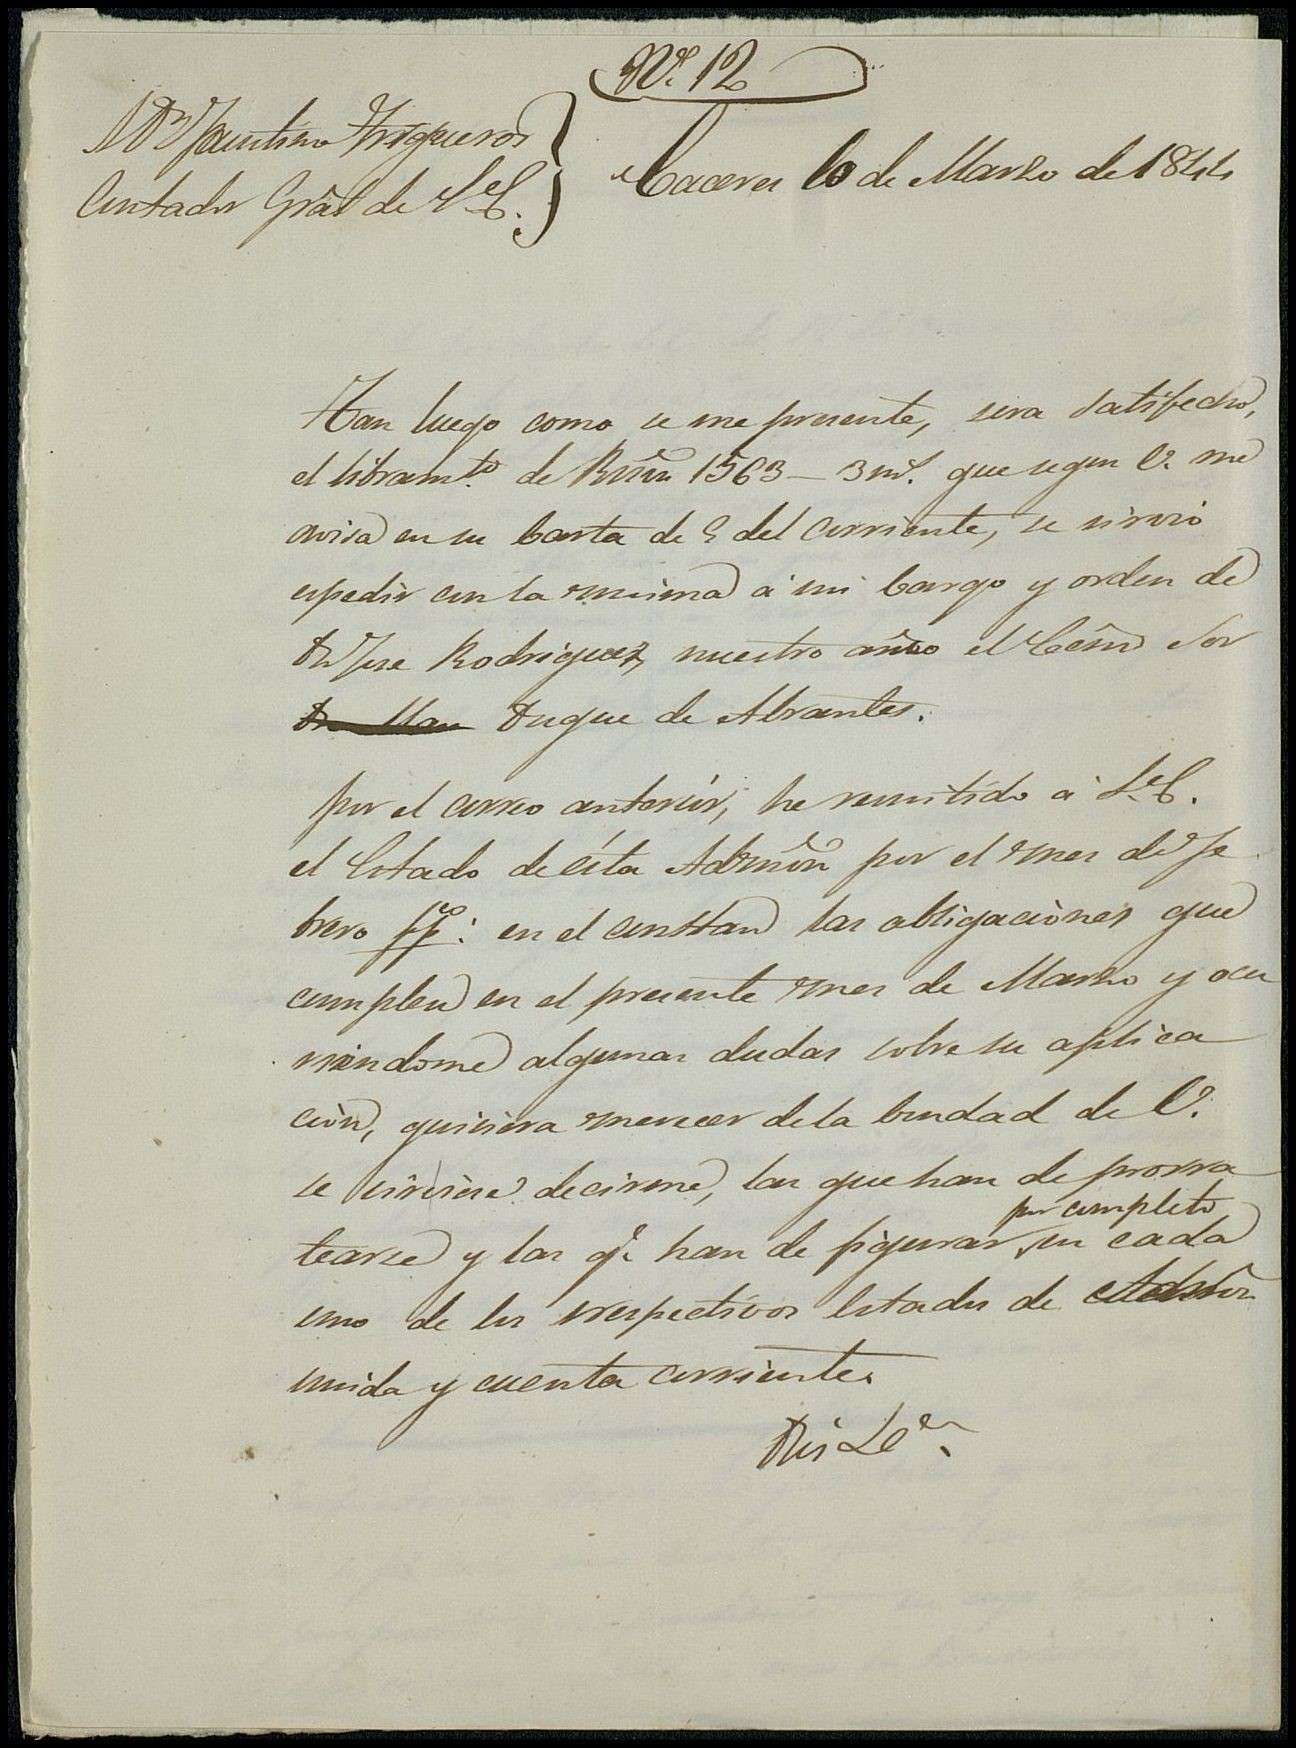 Nº. 12
Dn Faustino Trigueros
Contador Gral de S.E.
Caceres 10 de Marzo de 1844
Tan luego como se me presente, sera satisfecho,
el libramto. de Rsvn 1563-3 ms. que segun V. me
avisa en su Carta de 5 del corriente, se sirvió
espedir con la misma á mi Cargo y orden de
Dn Jose Rodriguez, nuestro amo el Exmo Sor
Duque de Abrantes.
por el correo anterior, he remitido á S.E.
el Estado de ésta Admon por el mes de Fe
brero ppº: en el constan las obligaciones que
cumplen en el presente mes de Marzo y ocu
rriendome algunas dudas sobre su aplica
ción, quisiera merecer de la bondad de V.
se sirviese decirme, las que han de prorra
tearse y las q.e han de figurar por completo en cada
uno de los respectivos Estados de Admon
unida y cuenta corriente.
Dios &a.